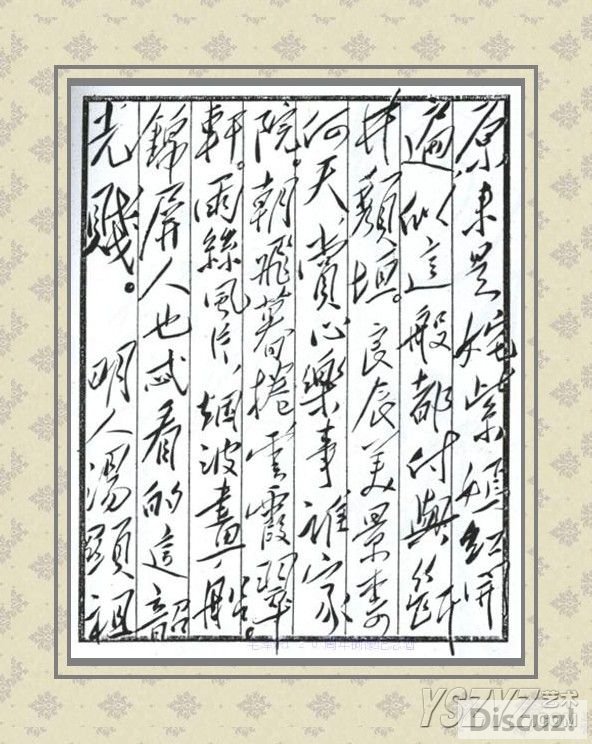 原来是姹紫嫣红開
遍似這般都付與斷
井頹垣。良辰美景奈
何天,賞心樂事誰家
院。朝飛暮捲雲霞翠
軒。雨絲風片,烟波畫船。
錦屏人也忒看的這韶
光賤。 明人湯顯祖
艺术
Discuz!